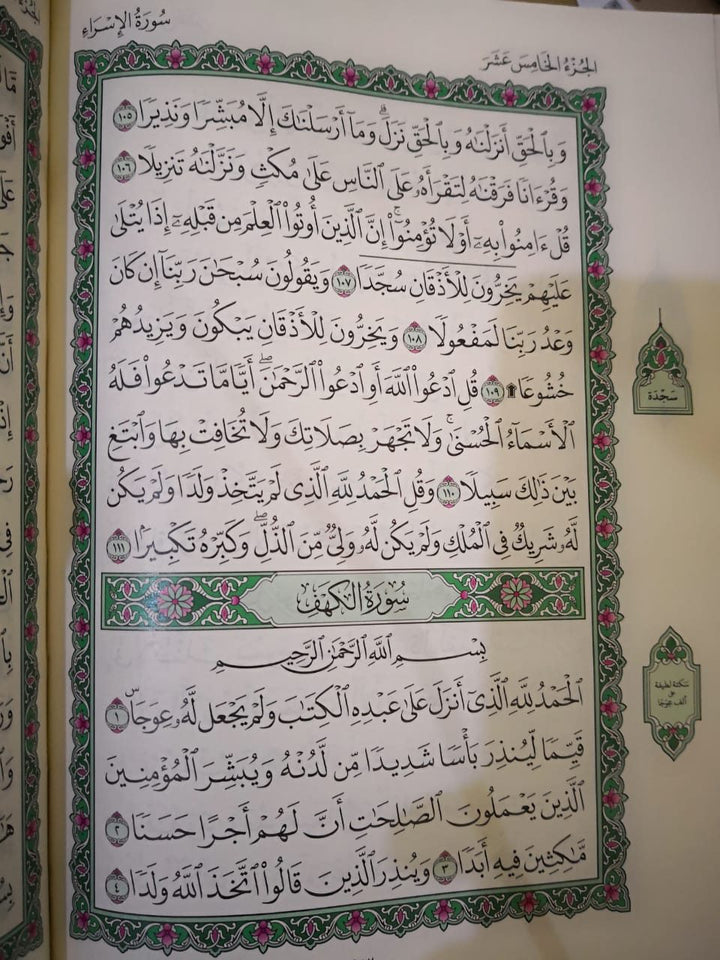 سُورَةُ الإِسْرَاءِ
الجُزْءُ الخَامِسَ عَشَرَ
وَبِالْحَقِّ أَنزَلْنَاهُ وَبِالْحَقِّ نَزَلَ ۗ وَمَا أَرْسَلْنَاكَ إِلَّا مُبَشِّرًا وَنَذِيرًا ١٠٥
وَقُرْءَانًا فَرَقْنَاهُ لِتَقْرَأَهُۥ عَلَى النَّاسِ عَلَىٰ مُكْثٍ وَنَزَّلْنَاهُ تَنزِيلًا ١٠٦
قُلْ ءَامِنُوا۟ بِهِۦٓ أَوْ لَا تُؤْمِنُوٓا۟ ۚ إِنَّ الَّذِينَ أُوتُوا۟ الْعِلْمَ مِن قَبْلِهِۦٓ إِذَا يُتْلَىٰ
عَلَيْهِمْ يَخِرُّونَ لِلْأَذْقَانِ سُجَّدًا ١٠٧ وَيَقُولُونَ سُبْحَٰنَ رَبِّنَآ إِن كَانَ
وَعْدُ رَبِّنَا لَمَفْعُولًا ١٠٨ وَيَخِرُّونَ لِلْأَذْقَانِ يَبْكُونَ وَيَزِيدُهُمْ
خُشُوعًا ۩ ١٠٩ قُلِ ادْعُوا۟ اللَّهَ أَوِ ادْعُوا۟ الرَّحْمَٰنَ ۖ أَيًّا مَّا تَدْعُوا۟ فَلَهُ
الْأَسْمَآءُ الْحُسْنَىٰ ۚ وَلَا تَجْهَرْ بِصَلَاتِكَ وَلَا تُخَافِتْ بِهَا وَابْتَغِ
بَيْنَ ذَٰلِكَ سَبِيلًا ١١٠ وَقُلِ الْحَمْدُ لِلَّهِ الَّذِى لَمْ يَتَّخِذْ وَلَدًا وَلَمْ يَكُن
لَّهُۥ شَرِيكٌ فِى الْمُلْكِ وَلَمْ يَكُن لَّهُۥ وَلِىٌّ مِّنَ الذُّلِّ ۖ وَكَبِّرْهُ تَكْبِيرًۢا ١١١
سَجْدَة
سُورَةُ الكَهْفِ
بِسْمِ اللَّهِ الرَّحْمَٰنِ الرَّحِيمِ
الْحَمْدُ لِلَّهِ الَّذِىٓ أَنزَلَ عَلَىٰ عَبْدِهِ الْكِتَٰبَ وَلَمْ يَجْعَل لَّهُۥ عِوَجَا ۜ ١
قَيِّمًا لِّيُنذِرَ بَأْسًا شَدِيدًا مِّن لَّدُنْهُ وَيُبَشِّرَ الْمُؤْمِنِينَ
الَّذِينَ يَعْمَلُونَ الصَّٰلِحَٰتِ أَنَّ لَهُمْ أَجْرًا حَسَنًا ٢
مَّٰكِثِينَ فِيهِ أَبَدًا ٣ وَيُنذِرَ الَّذِينَ قَالُوا۟ اتَّخَذَ اللَّهُ وَلَدًا ٤
سَكتة لطيفة
على
ألف عِوَجَا